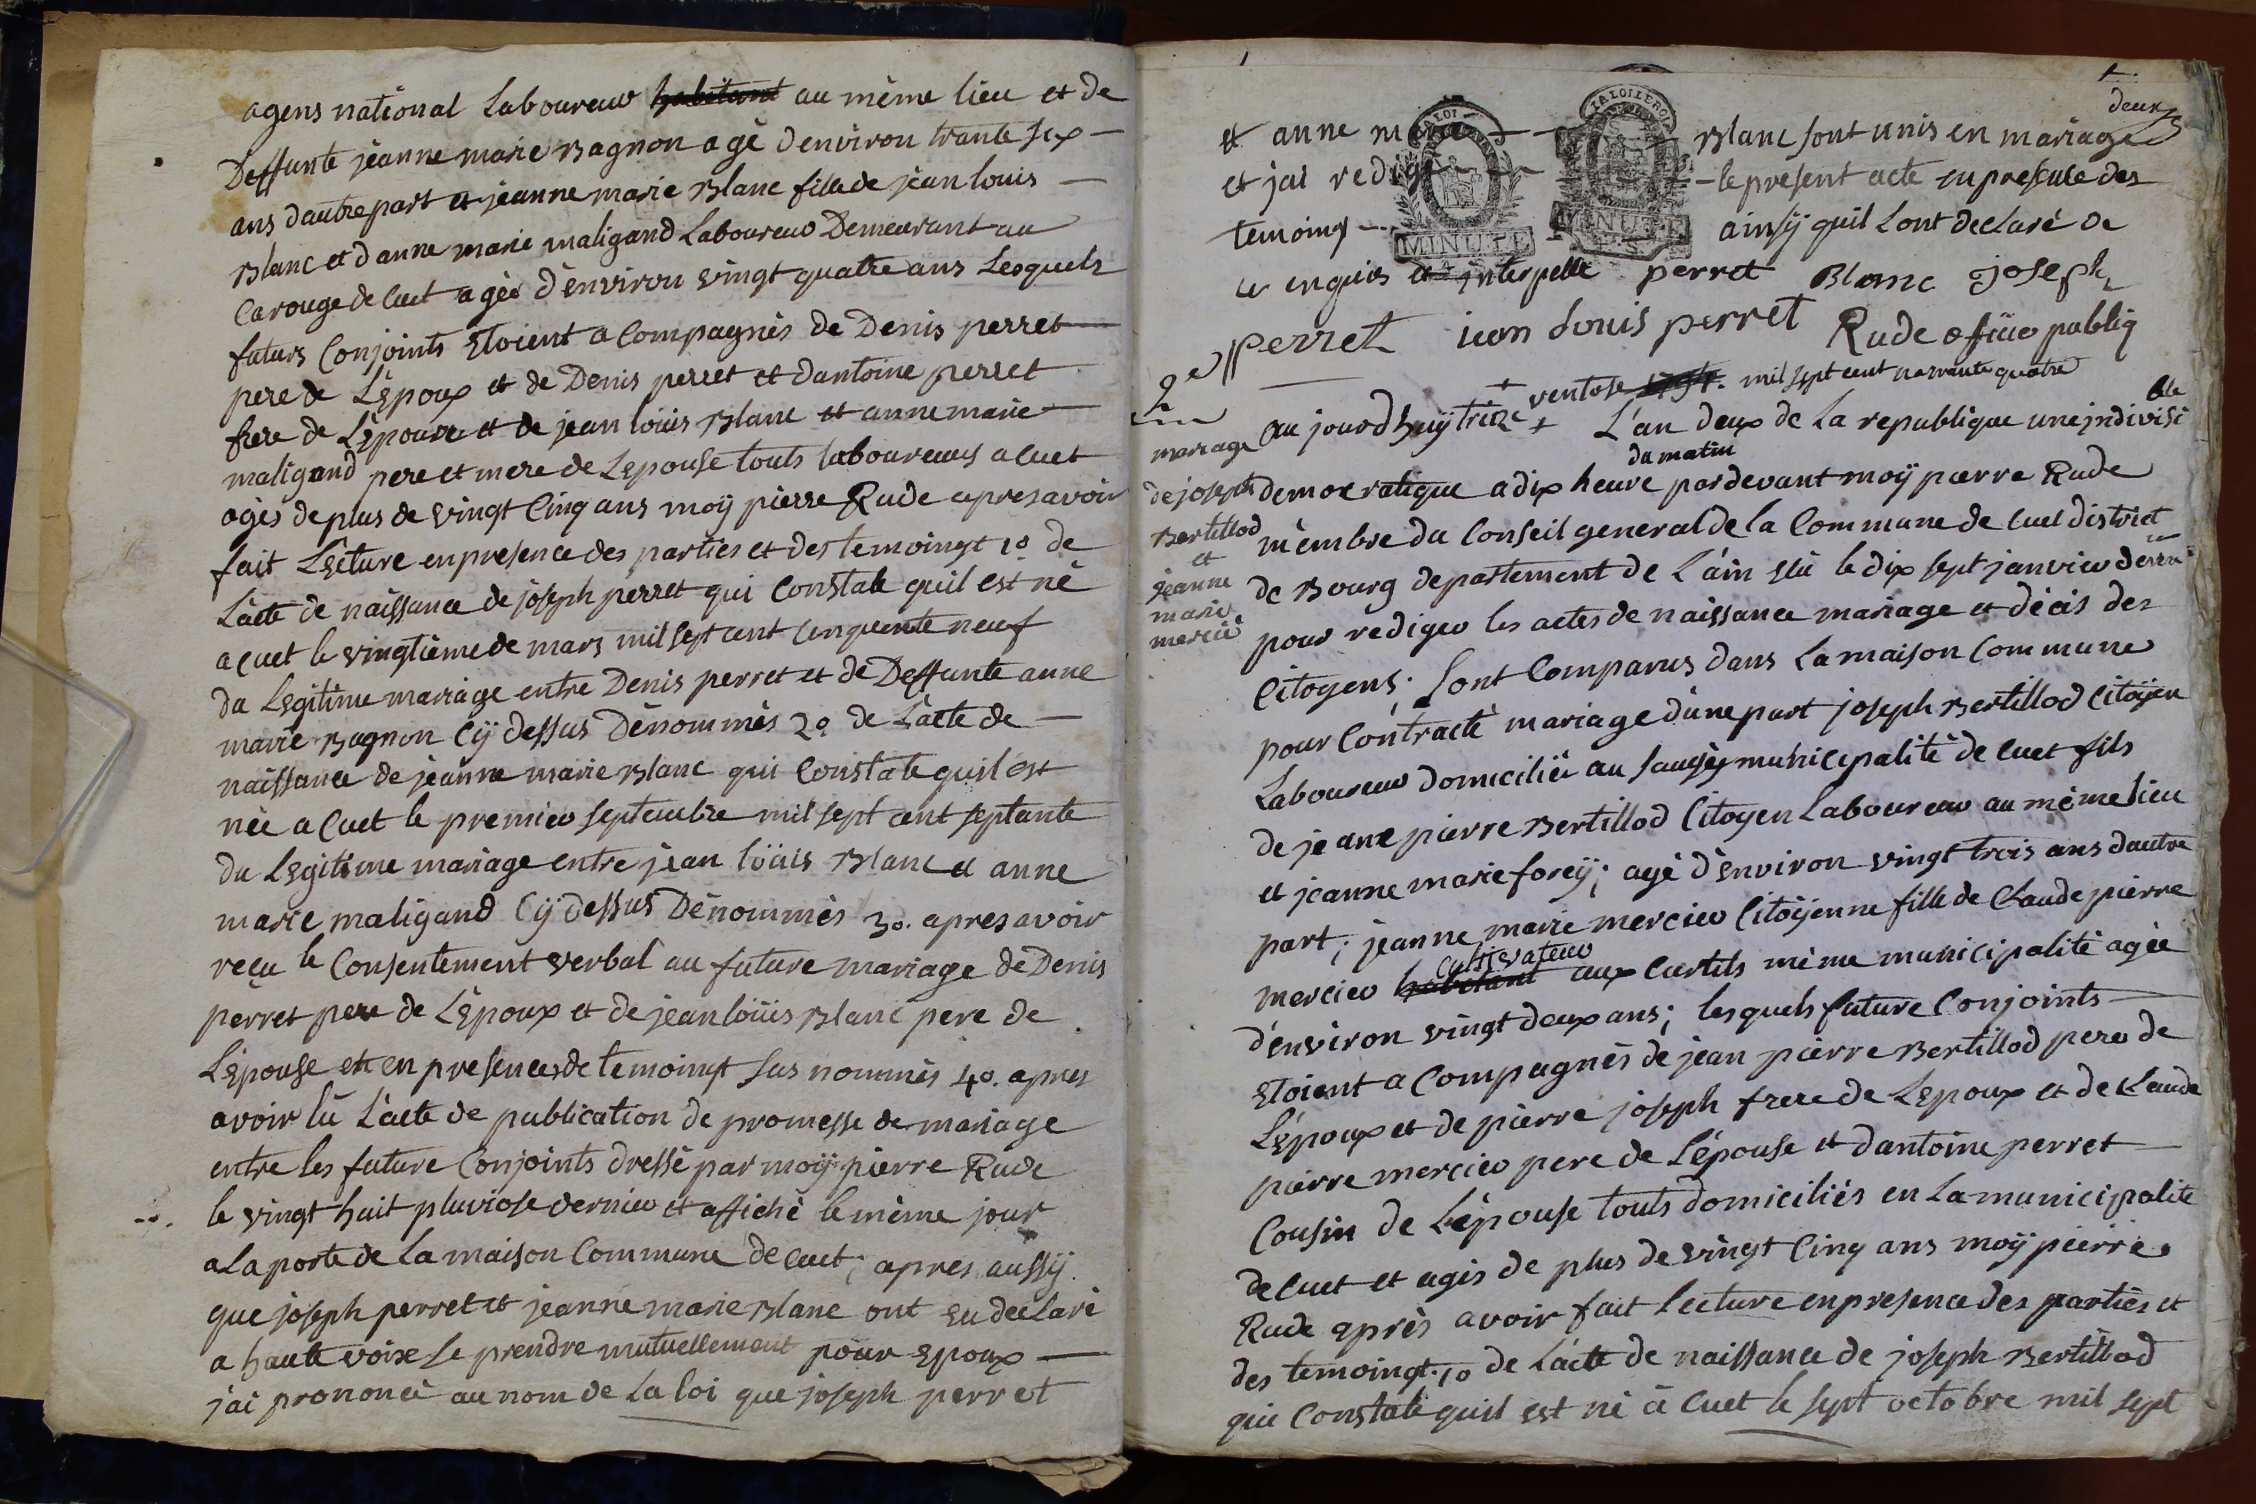 agens national Laboureur habitant au même lieu et de
Deffunte jeanne marie Bagnon agé denviron trante six
ans dautre part et jeanne marie Blanc fille de jean louis
Blanc et d anne marie maligand Laboureur Demeurant au
Carouge de Cuet agée d'environ vingt quatre ans Lesquels
futurs Conjoints Etoient a Compagnés de Denis perret
pere de L'Epoux et de Denis perret et dantoine perret
frere de L'Epoux et de jean loüis Blanc et anne marie
maligand pere et mere de Lepouse touts laboureurs a Cuet
agés de plus de vingt Cinq ans moÿ pierre Rude apres avoir
fait Lecture en presence des parties et des temoingt 1º de
L'acte de naissance de joseph perret qui Constate quil est né
a Cuet le vingtieme de mars mil sept cent cinquente neuf
du Legitime mariage entre Denis perret et de Deffunte anne
marie Bagnon Cÿ dessus Dénommés 2º de L'acte de
naissance de jeanne marie Blanc qui Constate quil est
née a Cuet le premier septembre mil sept cent septante
du Legitime mariage entre jean loüis Blanc et anne
marie maligand Cÿ dessus Dénommés 3º. apres avoir
reçu le Consentement verbal au future mariage de Denis
perret pere de L'Epoux et de jean loüis Blanc pere de
L'Epouse et en presences de temoingt sus nommés 4º. apres
avoir lü L'acte de publication de promesse de mariage
entre les future Conjoints dressé par moÿ pierre Rude
le vingt huit pluviose dernier et affiché le même jour
a La porte de La maison Commune de Cuet ; apres aussÿ
que joseph perret et jeanne marie Blanc ont Eu declaré
a haute voixe se prendre mutuellement pour Epoux
j'ai prononcé au nom de La loi que joseph perret
deux
et anne marie Blanc sont unis en mariage
et jai redigé le present acte en presence des
temoings ainsÿ quil Lont declaré de
ce enquis et interpellé perret Blanc joseph
perret jean Louis perret Rude officier public
LA LOI
LA LOI LE ROI
MINUTE
MINUTE
2e
mariage
de joseph
Bertillod
et
jeanne
marie
mercié
ventose 1794. mil sept cent nonante quatre
au jourdhuÿ treize L'an deux de La republique une indivisible
du matin
democratique a dix heure pardevant moÿ pierre Rude
mêmbre du Conseil general de la Commune de Cuet district
de Bourg departement de L'ain Elü le dix sept janvier dernié
pour rediger les actes de naissance mariage et décés des
Citoyens. Sont Comparus dans La maison Commune
pour Contracté mariage d'une part joseph Bertillod Citoÿen
Laboureur domicilié au municipalité de Cuet fils
de jeane pierre Bertillod Citoyen Laboureur au même lieu
et jeanne marie foreÿ ; agé d'environ vingt trois ans dautre
part ; jeanne marie mercier Citoÿenne fille de Claude pierre
Cultivateur
mercier habitant aux Curtils même municipalité agée
d'environ vingt deux ans ; lesquels future Conjoints
Etoient a Compagnés de jean pierre Bertillod pere de
L'Epoux et de pierre joseph frere de Lepoux et de Claude
pierre mercier pere de L'épouse et dantoine perret
Cousin de L'épouse touts domiciliés en La municipalité
de Cuet et agés de plus de vingt Cinq ans moÿ pierre
Rude après avoir fait lecture en presence des parties et
des temoingt. 1º de L'acte de naissance de joseph Bertillod
qui Constate quil est né à Cuet le sept octobre mil sept